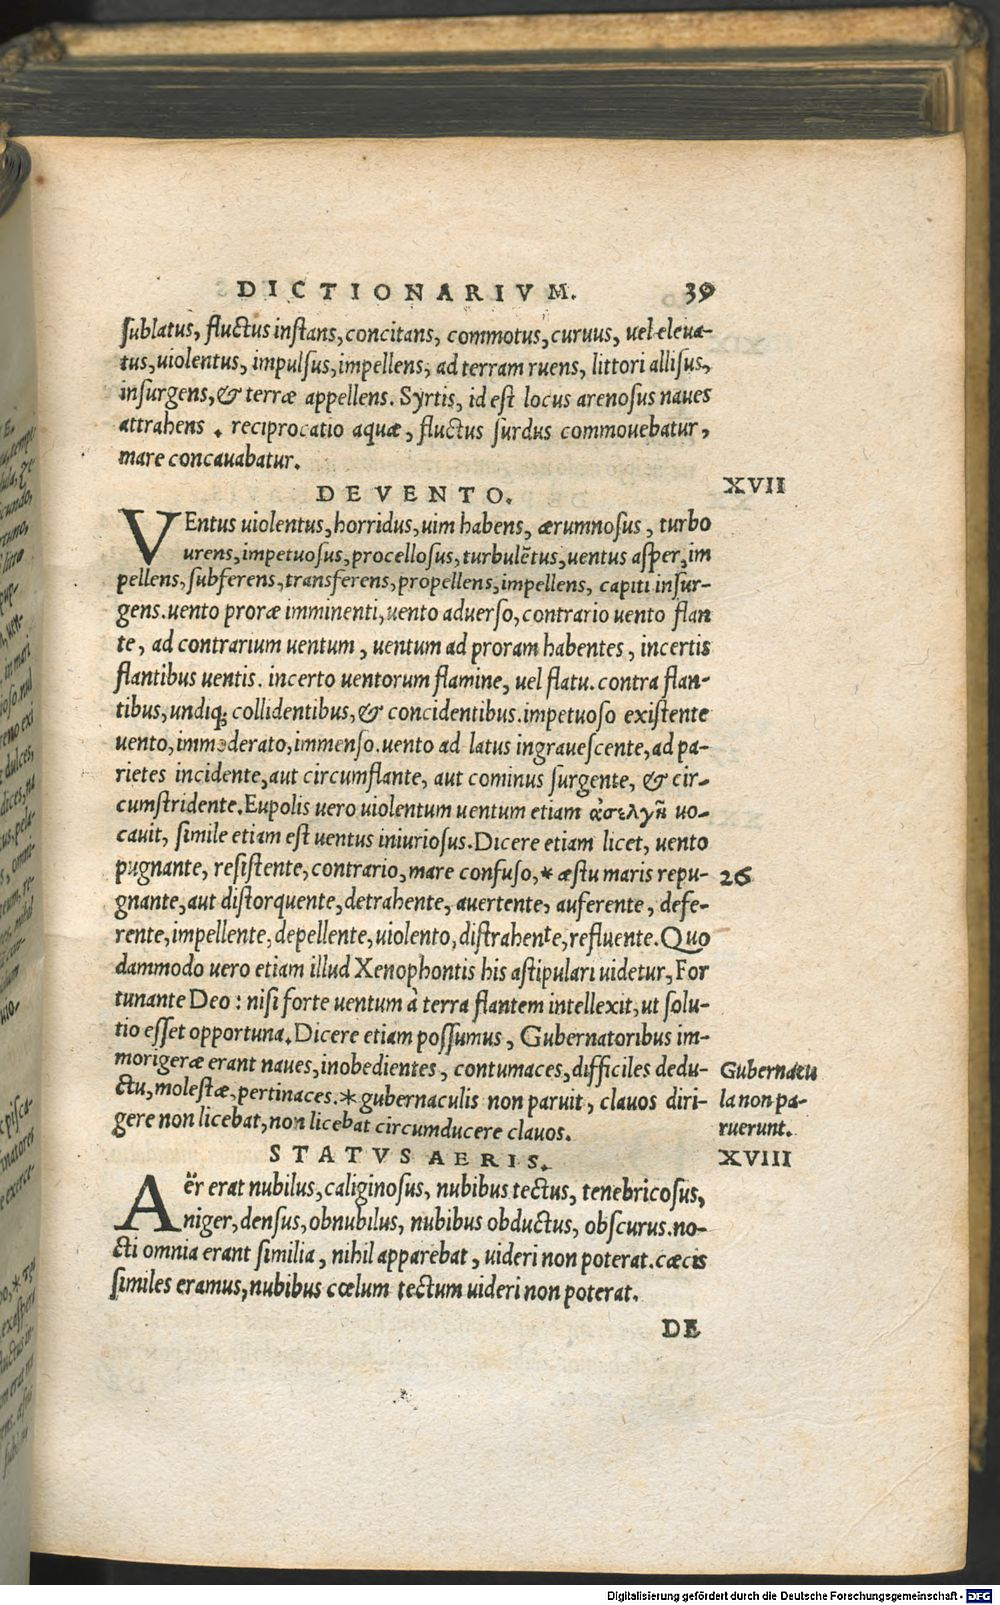 DICTIONARIVM. 39
sublatus, fluctus instans, concitans, commotus, curuus, uel eleua-
tus, uiolentus, impulsus, impellens, ad terram ruens, littori allisus,
insurgens, & terræ appellens. Syrtis, id est locus arenosus naues
attrahens . reciprocatio aquæ, fluctus surdus commouebatur,
mare concauabatur.
DE VENTO. XVII
VEntus uiolentus, horridus, uim habens, ærumnosus, turbo
urens, impetuosus, procellosus, turbulẽtus, uentus asper, im
pellens, subferens, transferens, propellens, impellens, capiti insur-
gens. uento proræ imminenti, uento aduerso, contrario uento flan
te, ad contrarium uentum, uentum ad proram habentes, incertis
flantibus uentis. incerto uentorum flamine, uel flatu. contra flan-
tibus, undiq; collidentibus, & concidentibus. impetuoso existente
uento, immoderato, immenso. uento ad latus ingrauescente, ad pa-
rietes incidente, aut circumflante, aut cominus surgente, & cir-
cumstridente. Eupolis uero uiolentum uentum etiam ἀσελγῆ uo-
cauit, simile etiam est uentus iniuriosus. Dicere etiam licet, uento
pugnante, resistente, contrario, mare confuso, * æstu maris repu- 26
gnante, aut distorquente, detrahente, auertente, auferente, defe-
rente, impellente, depellente, uiolento, distrahente, refluente. Quo
dammodo uero etiam illud Xenophontis his astipulari uidetur, For
tunante Deo: nisi forte uentum à terra flantem intellexit, ut solu-
tio esset opportuna. Dicere etiam possumus, Gubernatoribus im-
morigeræ erant naues, inobedientes, contumaces, difficiles dedu- Gubernacu
ctu, molestæ, pertinaces. * gubernaculis non paruit, clauos diri- la non pa-
gere non licebat, non licebat circumducere clauos. ruerunt.
STATVS AERIS. XVIII
Aër erat nubilus, caliginosus, nubibus tectus, tenebricosus,
niger, densus, obnubilus, nubibus obductus, obscurus. no-
cti omnia erant similia, nihil apparebat, uideri non poterat. cæcis
similes eramus, nubibus cœlum tectum uideri non poterat.
DE
Digitalisierung gefördert durch die Deutsche Forschungsgemeinschaft - DFG